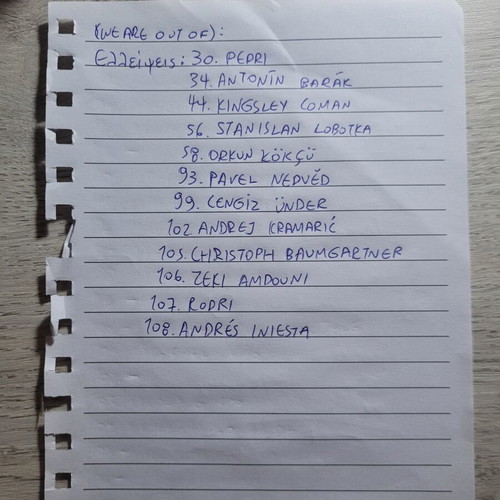 (WE ARE OUT OF):
Ελλείψεις: 30. PEDRI
34. ANTONÍN BARÁK
44. KINGSLEY COMAN
56. STANISLAN LOBOTKA
58. ORKUN KÖKÇÜ
93. PAVEL NEDVĚD
99. CENGIZ ÜNDER
102. ANDREJ KRAMARIĆ
105. CHRISTOPH BAUMGARTNER
106. ZEKI AMDOUNI
107. RODRI
108. ANDRÉS INIESTA